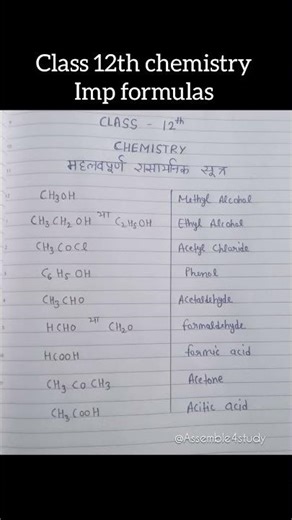 Class 12th chemistry
Imp formulas
CLASS - 12th
CHEMISTRY
महत्वपूर्ण रासायनिक सूत्र
CH3OH Methyl Alcohol
CH3CH2OH या C2H5OH Ethyl Alcohol
CH3COCl Acetyl Chloride
C6H5OH Phenol
CH3CHO Acetaldehyde
HCHO या CH2O formaldehyde
HCOOH formic acid
CH3COCH3 Acetone
CH3COOH Acitic acid
@Assemble4study